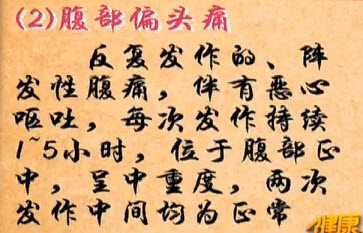 (2)腹部偏头痛
反复发作的、阵
发性腹痛，伴有恶心
呕吐，每次发作持续
1~5小时，位于腹部正
中，呈中重度，两次
发作中间均为正常
健康